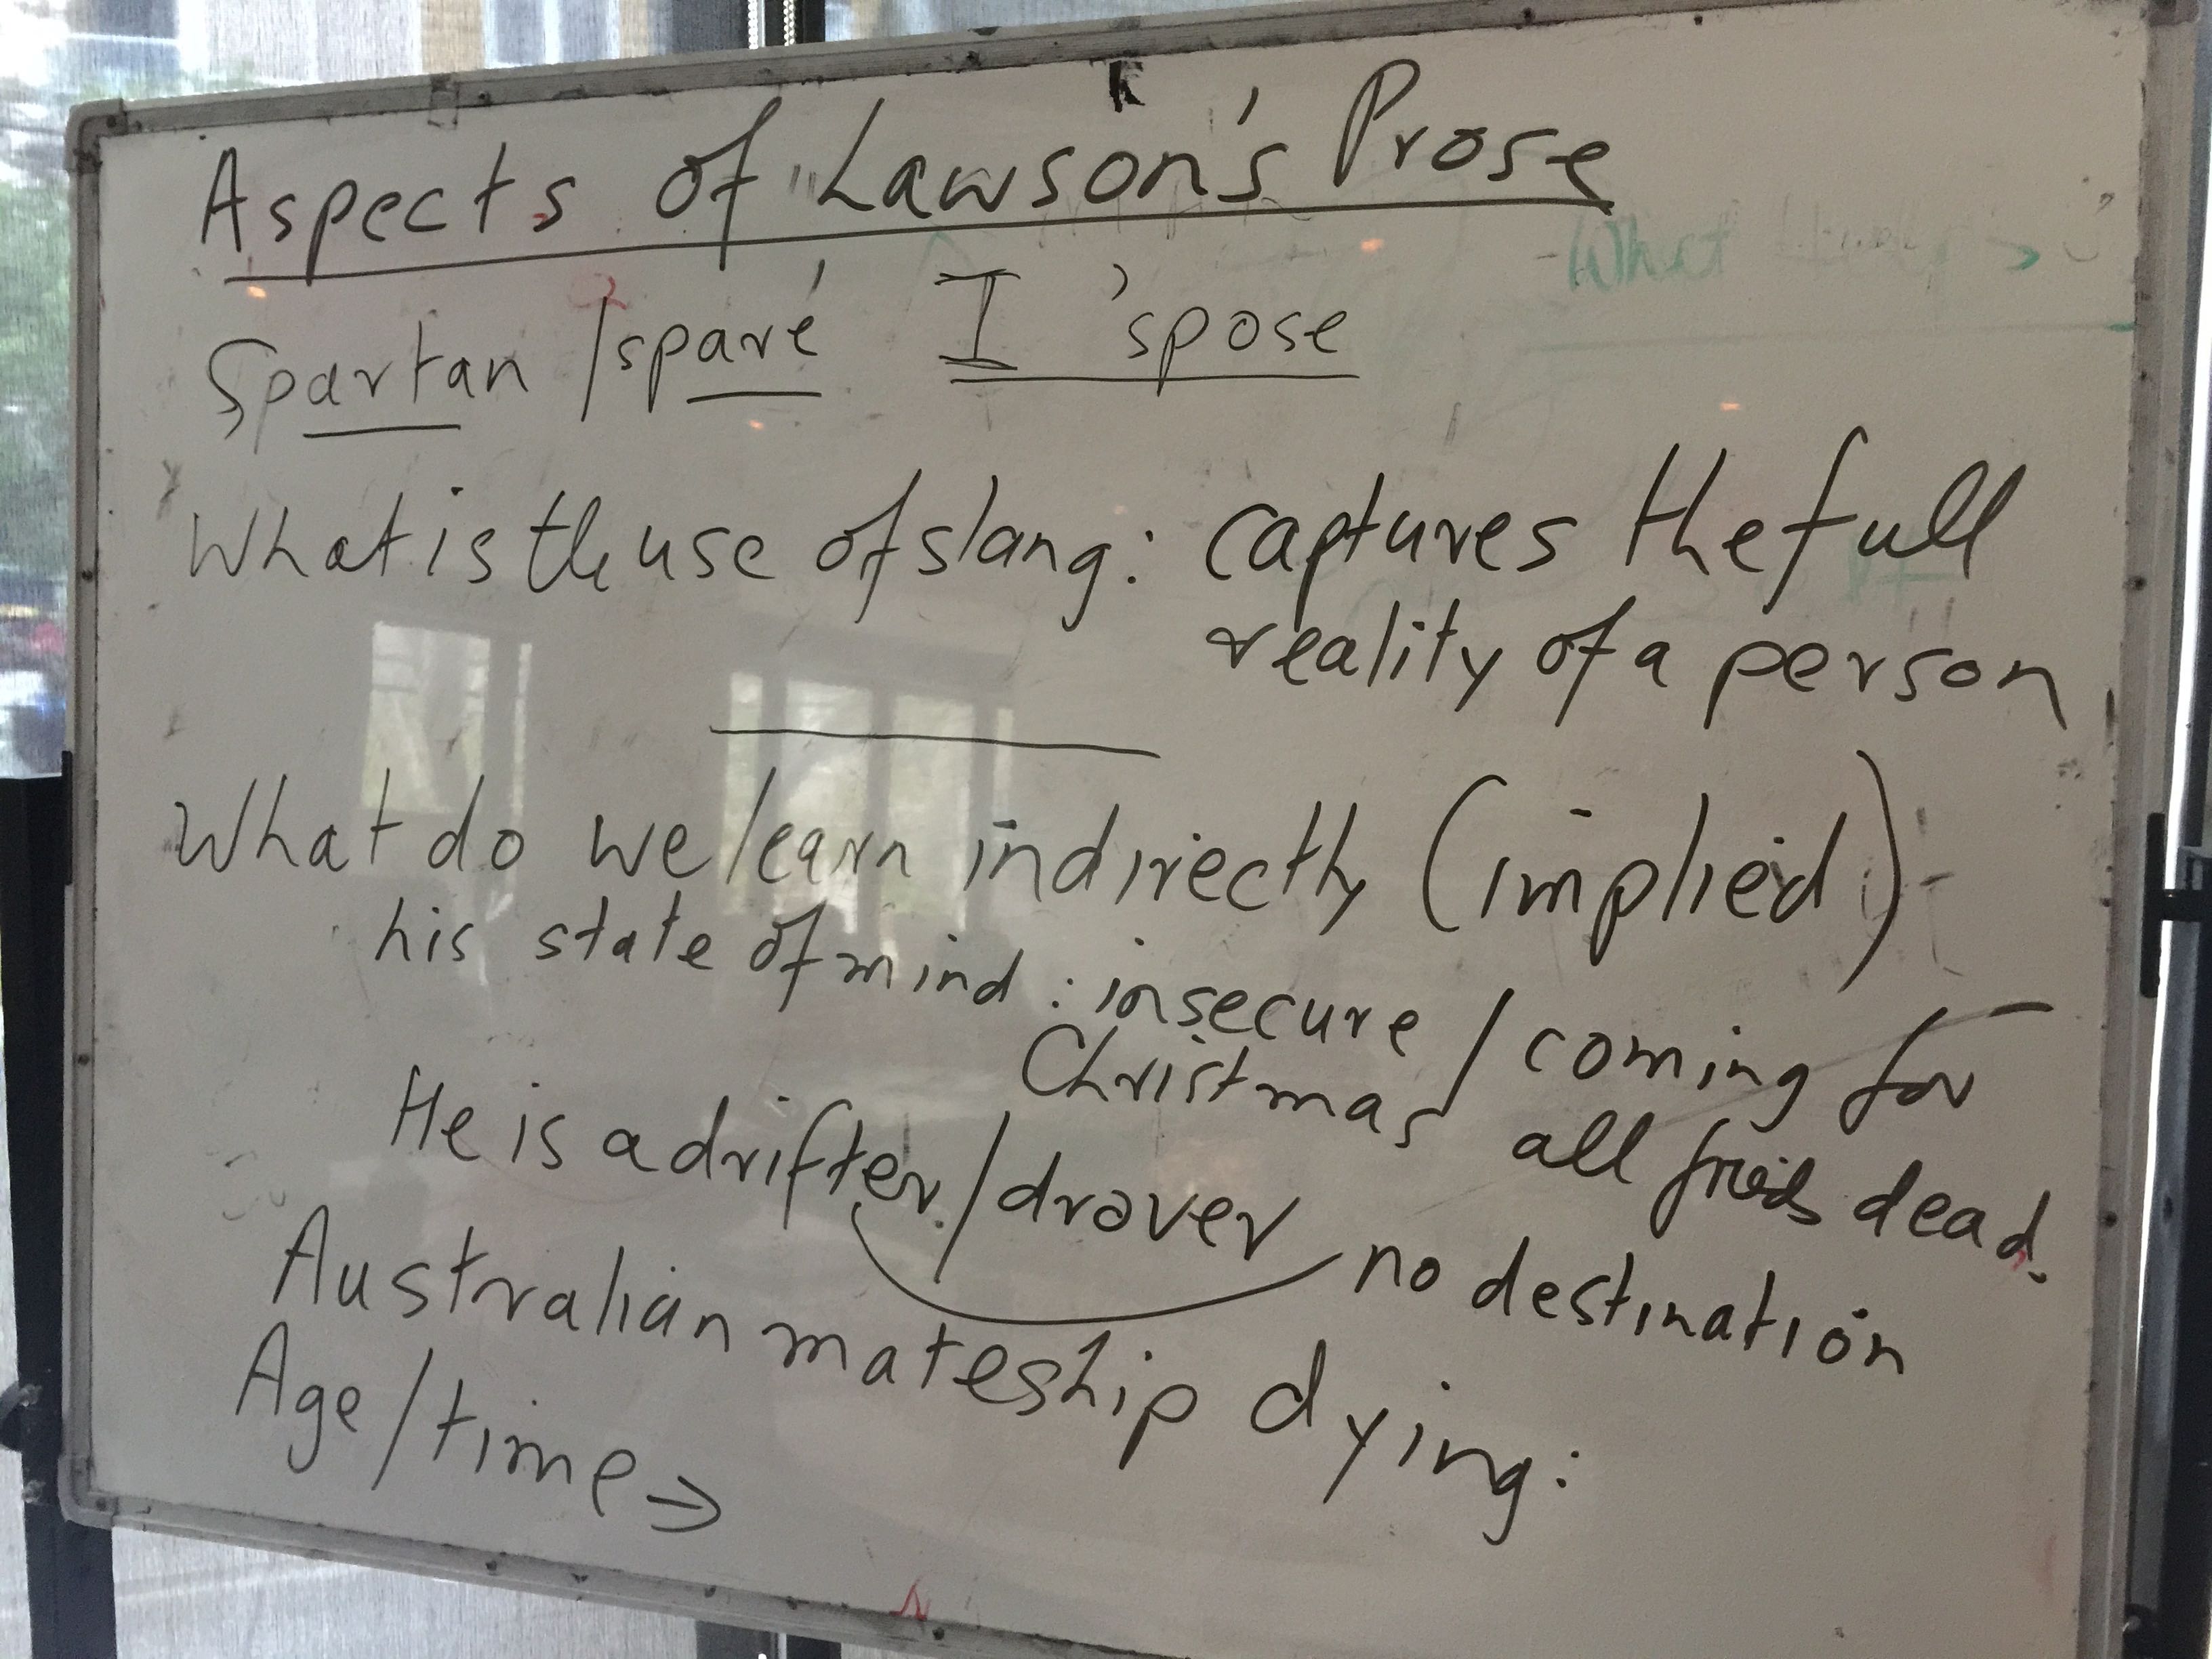 Aspects of Lawson's Prose
Spartan / spare I 'spose
What is the use of slang: captures the full
reality of a person
What do we learn indirectly (implied)
his state of mind: insecure / coming for
Christmas all frieds dead.
He is a drifter / drover no destination
Australian mateship dying:
Age / time →
What